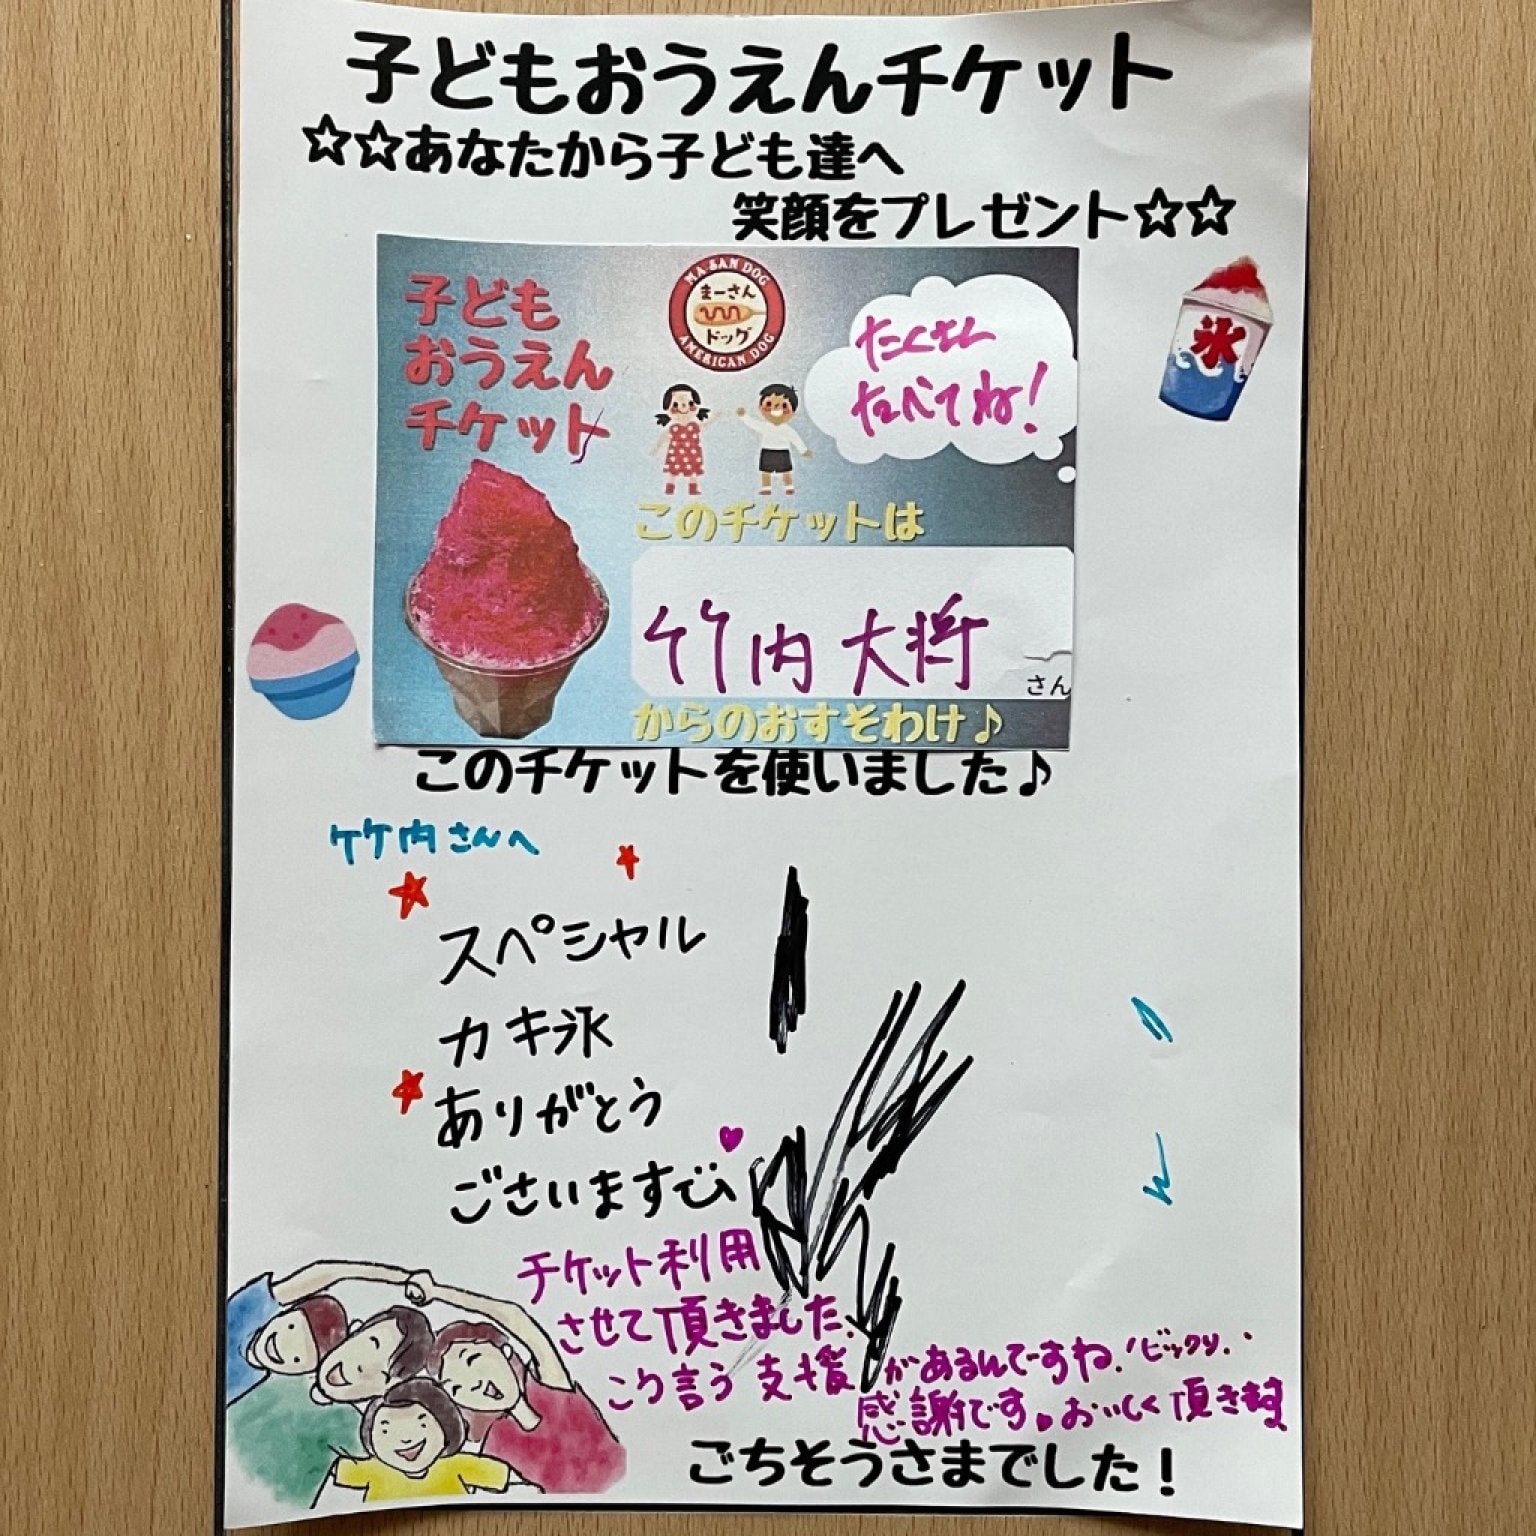 子どもおうえんチケット
☆☆あなたから子ども達へ
笑顔をプレゼント☆☆
子ども
おうえん
チケット
MA SAN DOG
まーさん
ドッグ
AMERICAN DOG
たくさん
たべてね!
氷
このチケットは
竹内 大将
さん
からのおすそわけ♪
このチケットを使いました♪
竹内さんへ
スペシャル
カキ氷
ありがとう
ございます
チケット利用
させて頂きました.
こう言う支援があるんですね.!ビックリ.
感謝です♥おいしく頂きます
ごちそうさまでした!